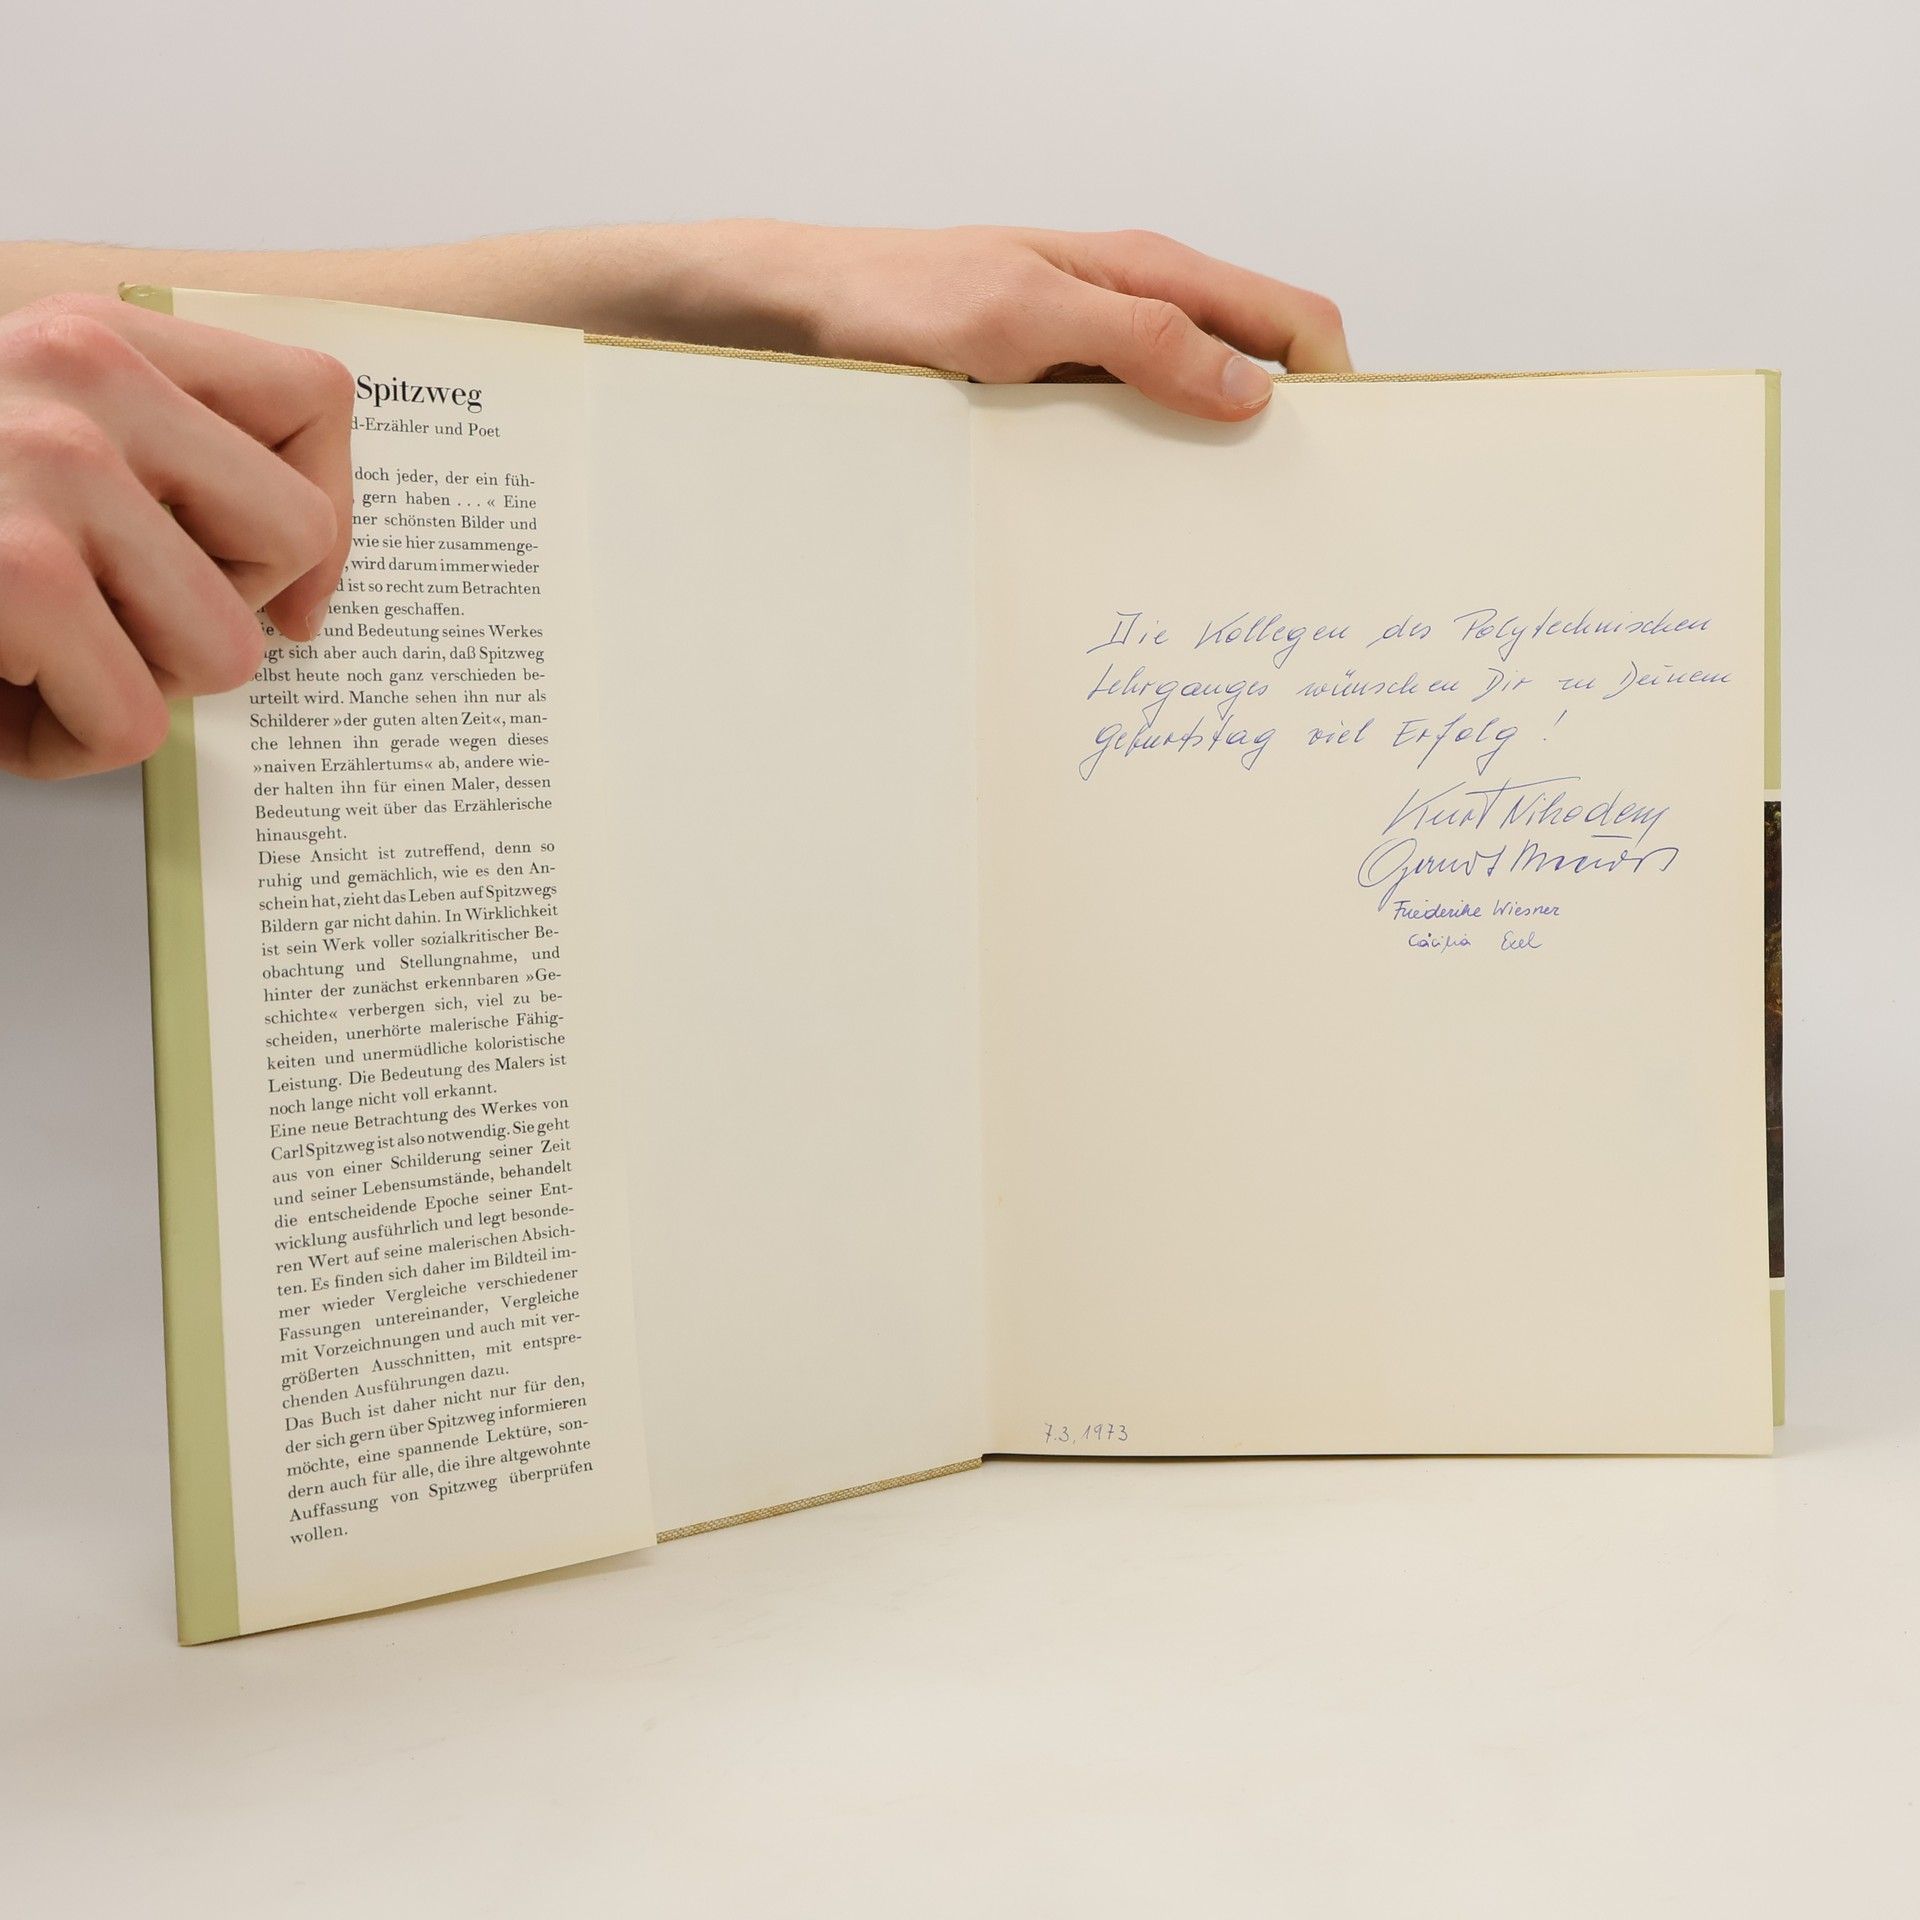 Spitzweg
d-Erzähler und Poet
doch jeder, der ein füh-
gern haben . . . « Eine
ner schönsten Bilder und
wie sie hier zusammenge-
, wird darum immer wieder
d ist so recht zum Betrachten
henken geschaffen.
und Bedeutung seines Werkes
sich aber auch darin, daß Spitzweg
selbst heute noch ganz verschieden be-
urteilt wird. Manche sehen ihn nur als
Schilderer »der guten alten Zeit«, man-
che lehnen ihn gerade wegen dieses
»naiven Erzählertums« ab, andere wie-
der halten ihn für einen Maler, dessen
Bedeutung weit über das Erzählerische
hinausgeht.
Diese Ansicht ist zutreffend, denn so
ruhig und gemächlich, wie es den An-
schein hat, zieht das Leben auf Spitzwegs
Bildern gar nicht dahin. In Wirklichkeit
ist sein Werk voller sozialkritischer Be-
obachtung und Stellungnahme, und
hinter der zunächst erkennbaren »Ge-
schichte« verbergen sich, viel zu be-
scheiden, unerhörte malerische Fähig-
keiten und unermüdliche koloristische
Leistung. Die Bedeutung des Malers ist
noch lange nicht voll erkannt.
Eine neue Betrachtung des Werkes von
Carl Spitzweg ist also notwendig. Sie geht
aus von einer Schilderung seiner Zeit
und seiner Lebensumstände, behandelt
die entscheidende Epoche seiner Ent-
wicklung ausführlich und legt besonde-
ren Wert auf seine malerischen Absich-
ten. Es finden sich daher im Bildteil im-
mer wieder Vergleiche verschiedener
Fassungen untereinander, Vergleiche
mit Vorzeichnungen und auch mit ver-
größerten Ausschnitten, mit entspre-
chenden Ausführungen dazu.
Das Buch ist daher nicht nur für den,
der sich gern über Spitzweg informieren
möchte, eine spannende Lektüre, son-
dern auch für alle, die ihre altgewohnte
Auffassung von Spitzweg überprüfen
wollen.
Die Kollegen des Polytechnischen
Lehrganges wünschen Dir zu Deinem
Geburtstag viel Erfolg !
Kurt Nikodem
Friederike Wiesner
Cäcilia
7.3.1973